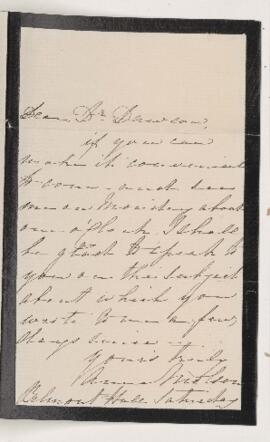 Dear Dr. Dawson,
if you can
make it convenient
to come and see
me on Monday about
one o'Clock I shall
be glad to speak to
you on the subject
about which you
wrote to me a few
days since.
yours truly
Anne Molson
Belmont Hall Saturday